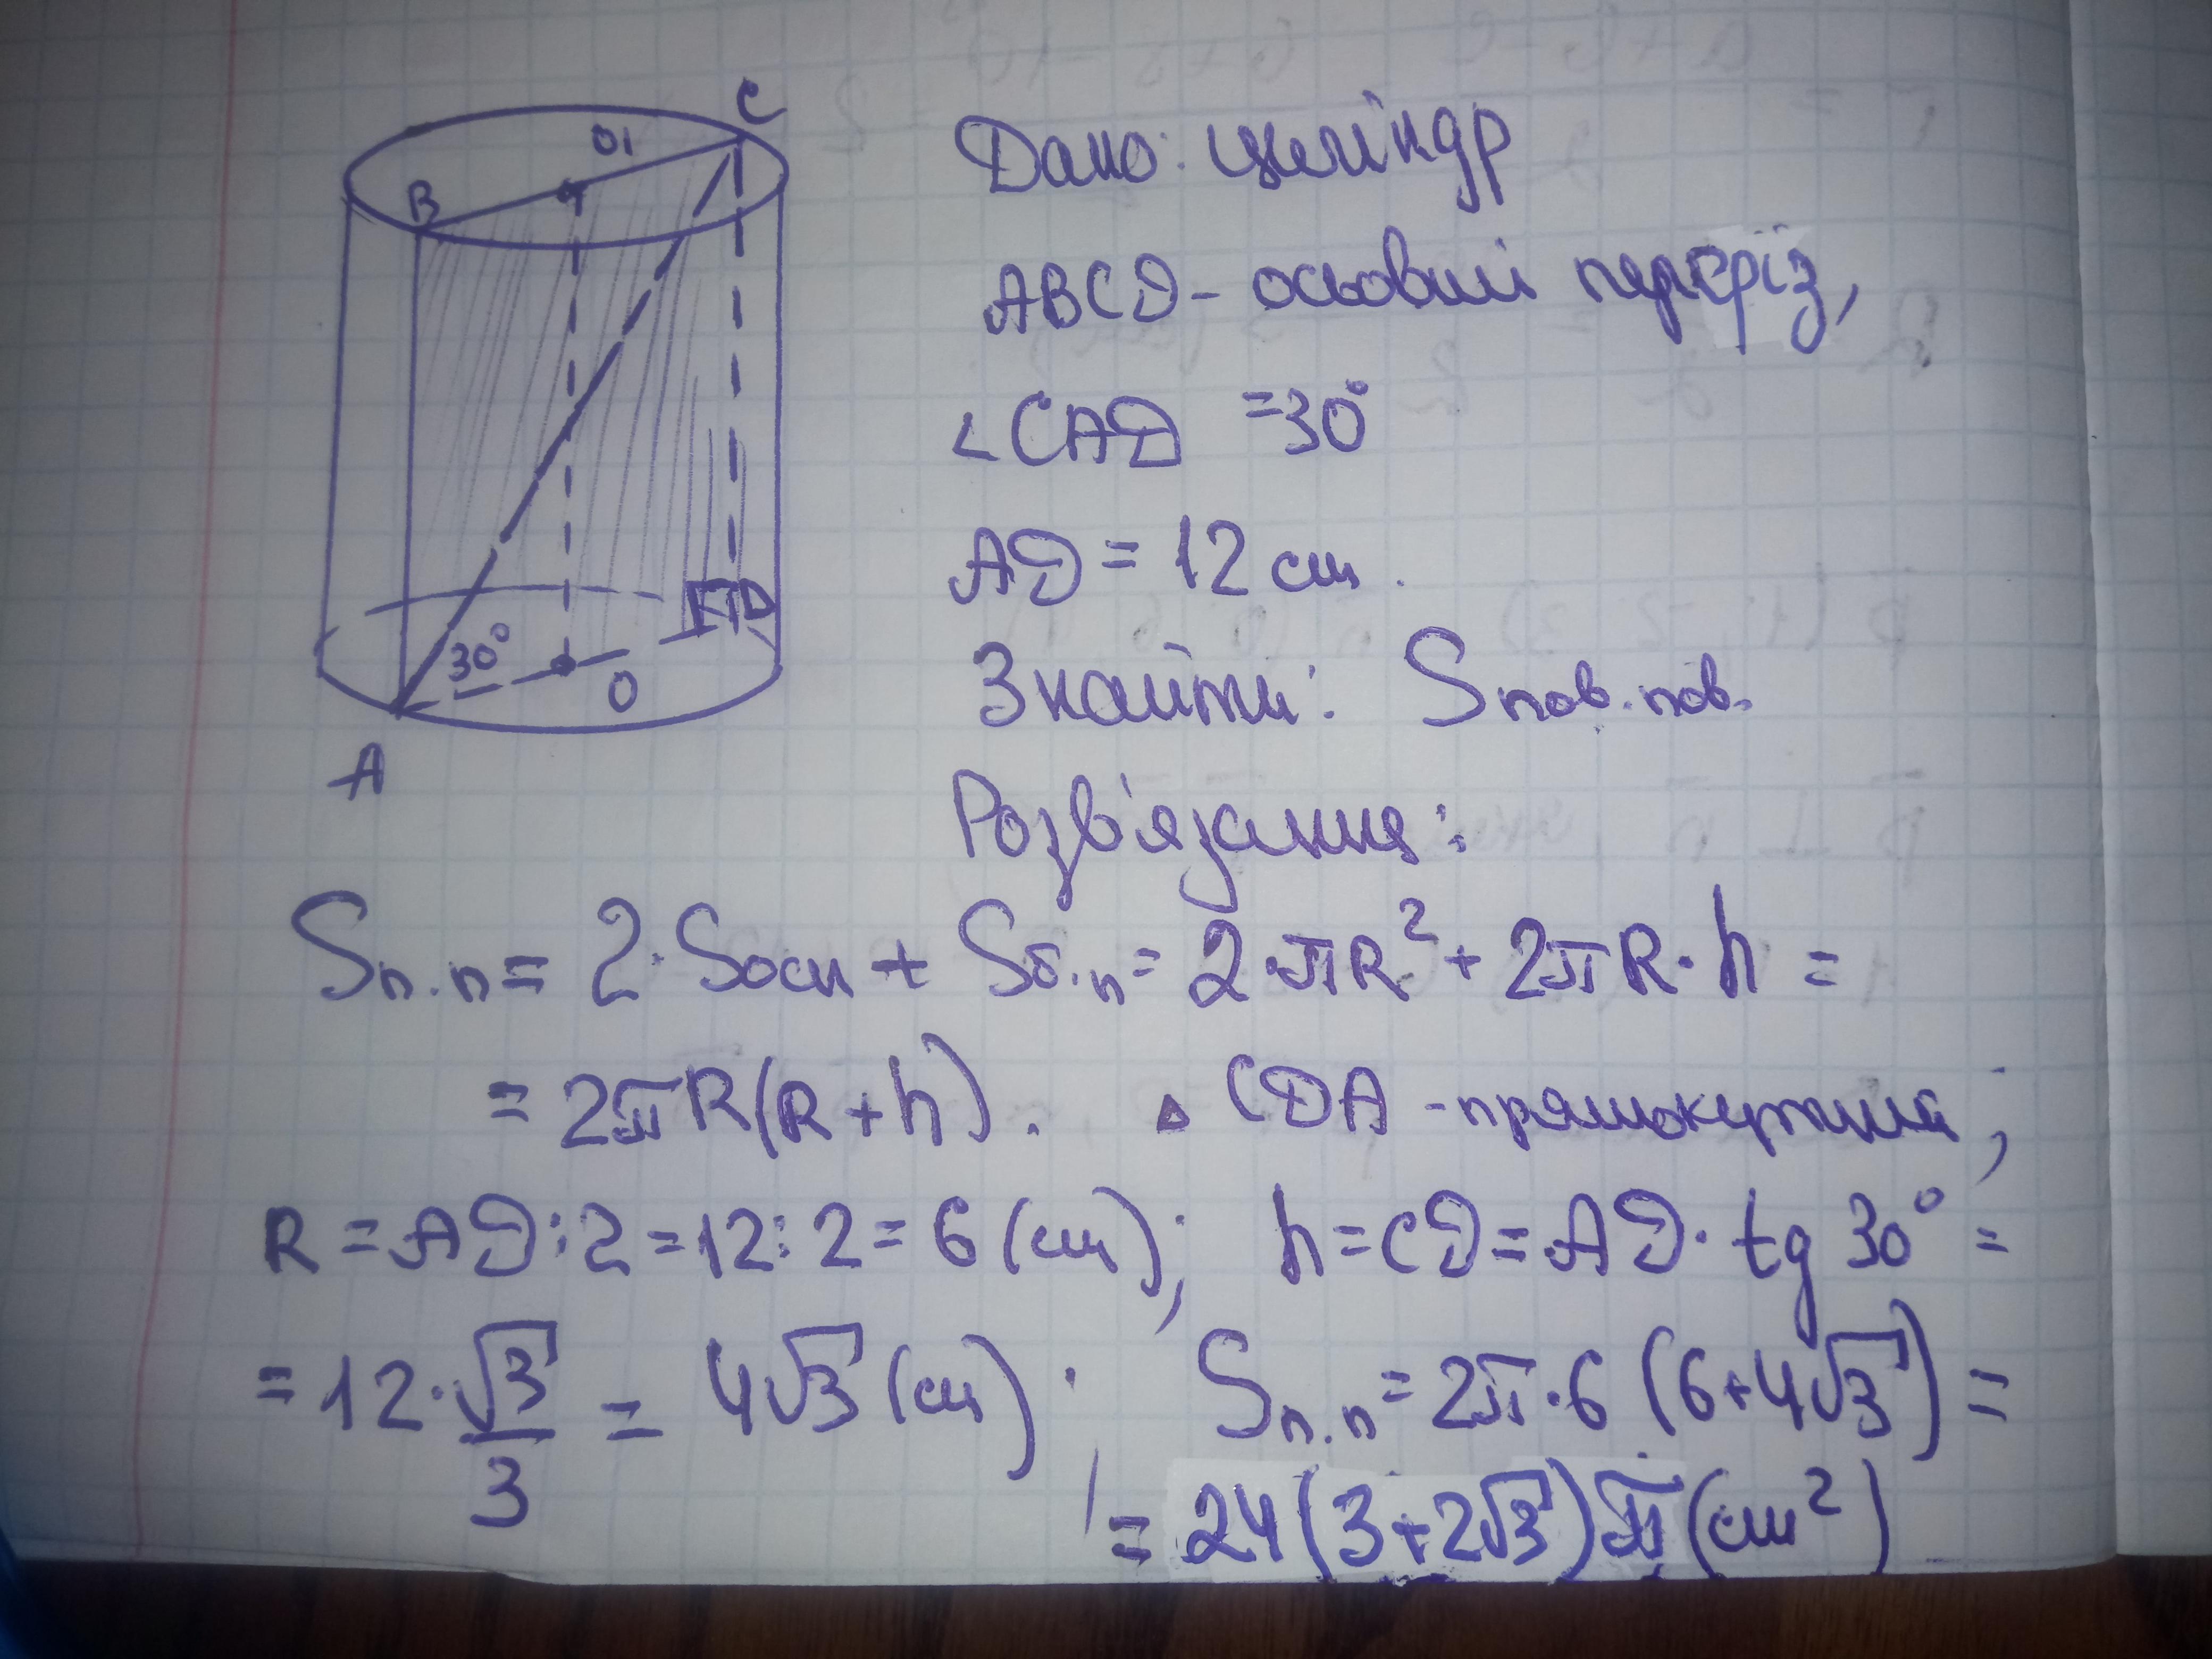 C
O1
B
30°
D
O
A
Дано: циліндр
ABCD - осьовий переріз,
∠CAD = 30°
AD = 12 см.
Знайти: Sпов.пов.
Розв'язання:
Sп.п = 2·Sосн + Sб.п = 2·πR² + 2πR·h =
= 2πR(R+h). △ CDA - прямокутний;
R = AD:2 = 12:2 = 6 (см); h = CD = AD·tg 30° =
= 12·√3/3 = 4√3 (см); Sп.п = 2π·6 (6+4√3) =
= 24(3+2√3)π (см²)